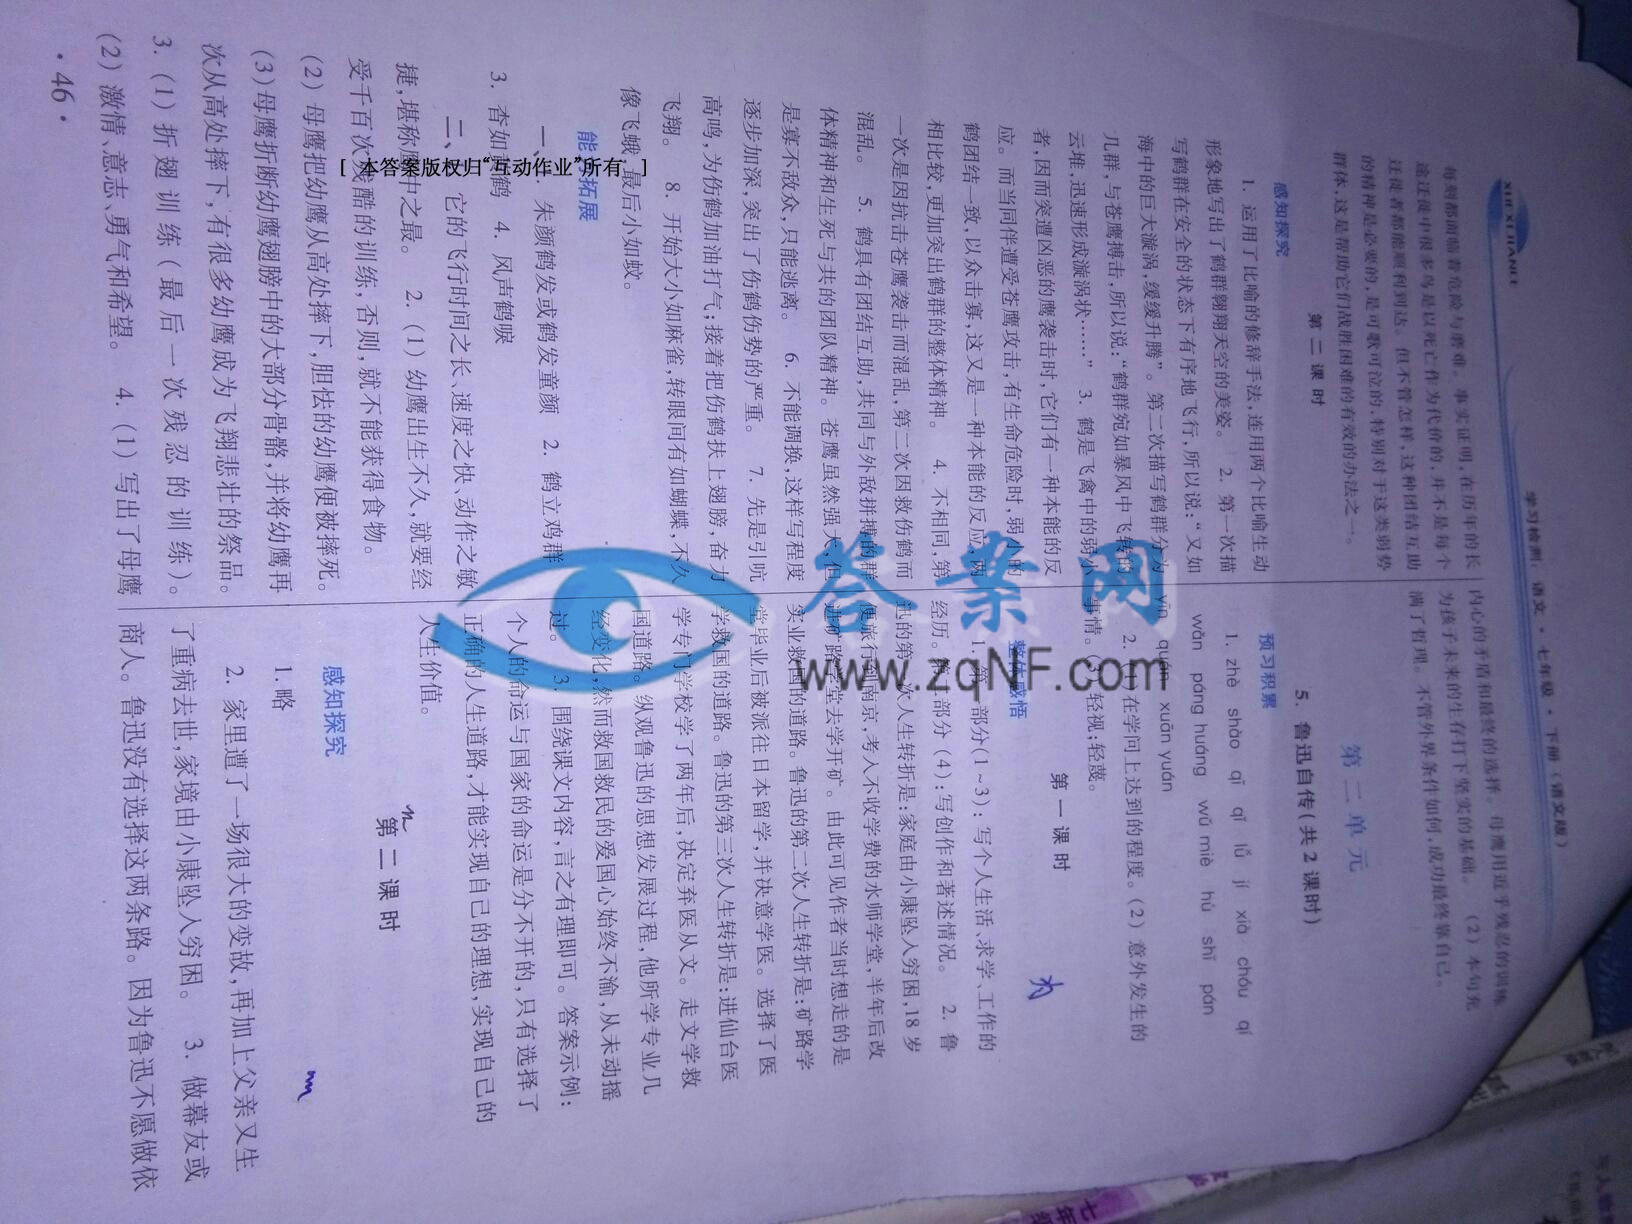 XUE XI JIAN CE
学习检测·语文·七年级·下册(语文版)
每刻都面临着危险与磨难。事实证明,在历年的长
途迁徙中很多鸟是以死亡作为代价的,并不是每个
迁徙者都能顺利到达。但不管怎样,这种团结互助
的精神是必要的,是可歌可泣的,特别对于这类弱势
群体,这是帮助它们战胜困难的有效的办法之一。
第二课时
感知探究
1. 运用了比喻的修辞手法,连用两个比喻生动
形象地写出了鹤群翱翔天空的美姿。 2. 第一次描
写鹤群在安全的状态下有序地飞行,所以说:“又如
海中的巨大漩涡,缓缓升腾”。第二次描写鹤群分为
几群,与苍鹰搏击,所以说:“鹤群宛如暴风中飞转的
云堆,迅速形成漩涡状……” 3. 鹤是飞禽中的弱小
者,因而突遭凶恶的鹰袭击时,它们有一种本能的反
应。而当同伴遭受苍鹰攻击,有生命危险时,弱小的
鹤团结一致,以众击寡,这又是一种本能的反应,两
相比较,更加突出鹤群的整体精神。 4. 不相同,第
一次是因抗击苍鹰袭击而混乱,第二次因救伤鹤而
混乱。 5. 鹤具有团结互助,共同与外敌拼搏的群
体精神和生死与共的团队精神。苍鹰虽然强大,但
是寡不敌众,只能逃离。 6. 不能调换,这样写程度
逐步加深,突出了伤鹤伤势的严重。 7. 先是引吭
高鸣,为伤鹤加油打气;接着把伤鹤扶上翅膀,奋力
飞翔。 8. 开始大小如麻雀,转眼间有如蝴蝶,不久
像飞蛾,最后小如蚊。
能 拓展
一、 朱颜鹤发或鹤发童颜 2. 鹤立鸡群
3. 杳如 鹤 4. 风声鹤唳
二、 它的飞行时间之长、速度之快、动作之敏
捷,堪称 中之最。 2. (1)幼鹰出生不久,就要经
受千百次残酷的训练,否则,就不能获得食物。
(2)母鹰把幼鹰从高处摔下,胆怯的幼鹰便被摔死。
(3)母鹰折断幼鹰翅膀中的大部分骨骼,并将幼鹰再
次从高处摔下,有很多幼鹰成为飞翔悲壮的祭品。
3. (1)折翅训练(最后一次残忍的训练)。
(2)激情、意志,勇气和希望。 4. (1)写出了母鹰
·46·
内心的矛盾和最终的选择。母鹰用近乎残忍的训练
为孩子未来的生存打下坚实的基础。 (2)本句充
满了哲理。不管外界条件如何,成功最终靠自己。
第二单元
5. 鲁迅自传(共2课时)
预习积累
1. zhè shào qī qǐ lǚ jí xià chóu qí
wǎn páng huáng wǔ miè hù shī pán
yǐn quán xuān yuán
2. (1)在学问上达到的程度。(2)意外发生的
事情。(3)轻视;轻蔑。
第一课时
整体感悟
1. 第一部分(1~3):写个人生活、求学、工作的
经历。第二部分(4):写创作和著述情况。 2. 鲁
迅的第一次人生转折是:家庭由小康坠入穷困,18岁
便旅行到南京,考入不收学费的水师学堂,半年后改
进矿路学堂去学开矿。由此可见作者当时想走的是
实业救国的道路。鲁迅的第二次人生转折是:矿路学
堂毕业后被派往日本留学,并决意学医。选择了医
学救国的道路。鲁迅的第三次人生转折是:进仙台医
学专门学校学了两年后,决定弃医从文。走文学救
国道路。纵观鲁迅的思想发展过程,他所学专业几
经变化,然而救国救民的爱国心始终不渝,从未动摇
过。 3. 围绕课文内容,言之有理即可。答案示例:
个人的命运与国家的命运是分不开的,只有选择了
正确的人生道路,才能实现自己的理想,实现自己的
人生价值。
第二课时
感知探究
1. 略
2. 家里遭了一场很大的变故,再加上父亲又生
了重病去世,家境由小康坠入穷困。 3. 做幕友或
商人。鲁迅没有选择这两条路。因为鲁迅不愿做依
[ 本答案版权归“互动作业”所有 ]
答案网
www.zqNF.com
七年级